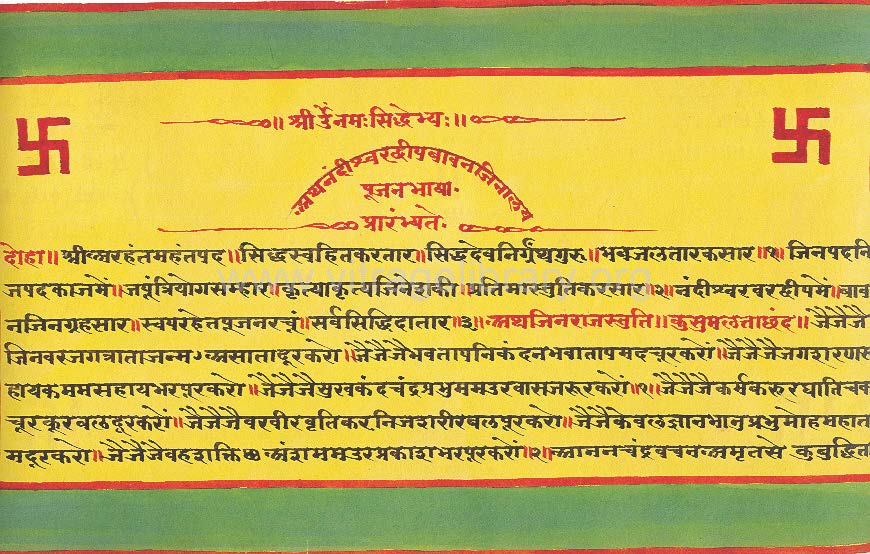 ॥ श्रीॐनमःसिद्धेभ्यः॥
अथनंदीश्वरद्वीपबावनजिनालय
पूजनभाषा
प्रारंभ्यते
दोहा॥ श्रीअरहंतमहंतपद॥सिद्धस्वहितकरतार॥सिद्धदेवनिर्ग्रंथगुरू॥भवजलतारकसार॥१॥ जिनपदनि
जपदकाजमें॥जपूंत्रियोगसम्हार॥कृत्याकृत्यजिनेशकी॥प्रतिमास्तुतिकरसार॥२॥ नंदीश्वरवरद्वीपमें॥बाव
नजिनगृहसार॥स्वपरहेतपूजनरचूं॥सर्वसिद्धिदातार॥३॥ अथजिनराजस्तुति॥ कुसुमलताछंद॥जैजैजै
जिनवरजगत्राताजन्मअसातादूरकरो॥जैजैजैभवतापनिकंदनभवातापमदचूरकरों॥जैजैजैजगशरणस
हायकममसहायभरपूरकरो॥जैजैजैसुखकंदचंद्रप्रभुममउरवासजरूरकरों॥१॥ जैजैजैकर्मकरूरघातिचव
चूरकूरबलदूरकरों॥जैजैजैवरवीरवृतिकरनिजशरीरबलपूरकरो॥जैजैकेवलज्ञानभानुप्रभुमोहमहात
मदूरकरो॥जैजैजैवहशक्ति अंशममउरप्रकाशभरपूरकरों॥२॥आननचंद्रवचनअमृतसे कुबुद्धिता
www.vitragelibrary.org